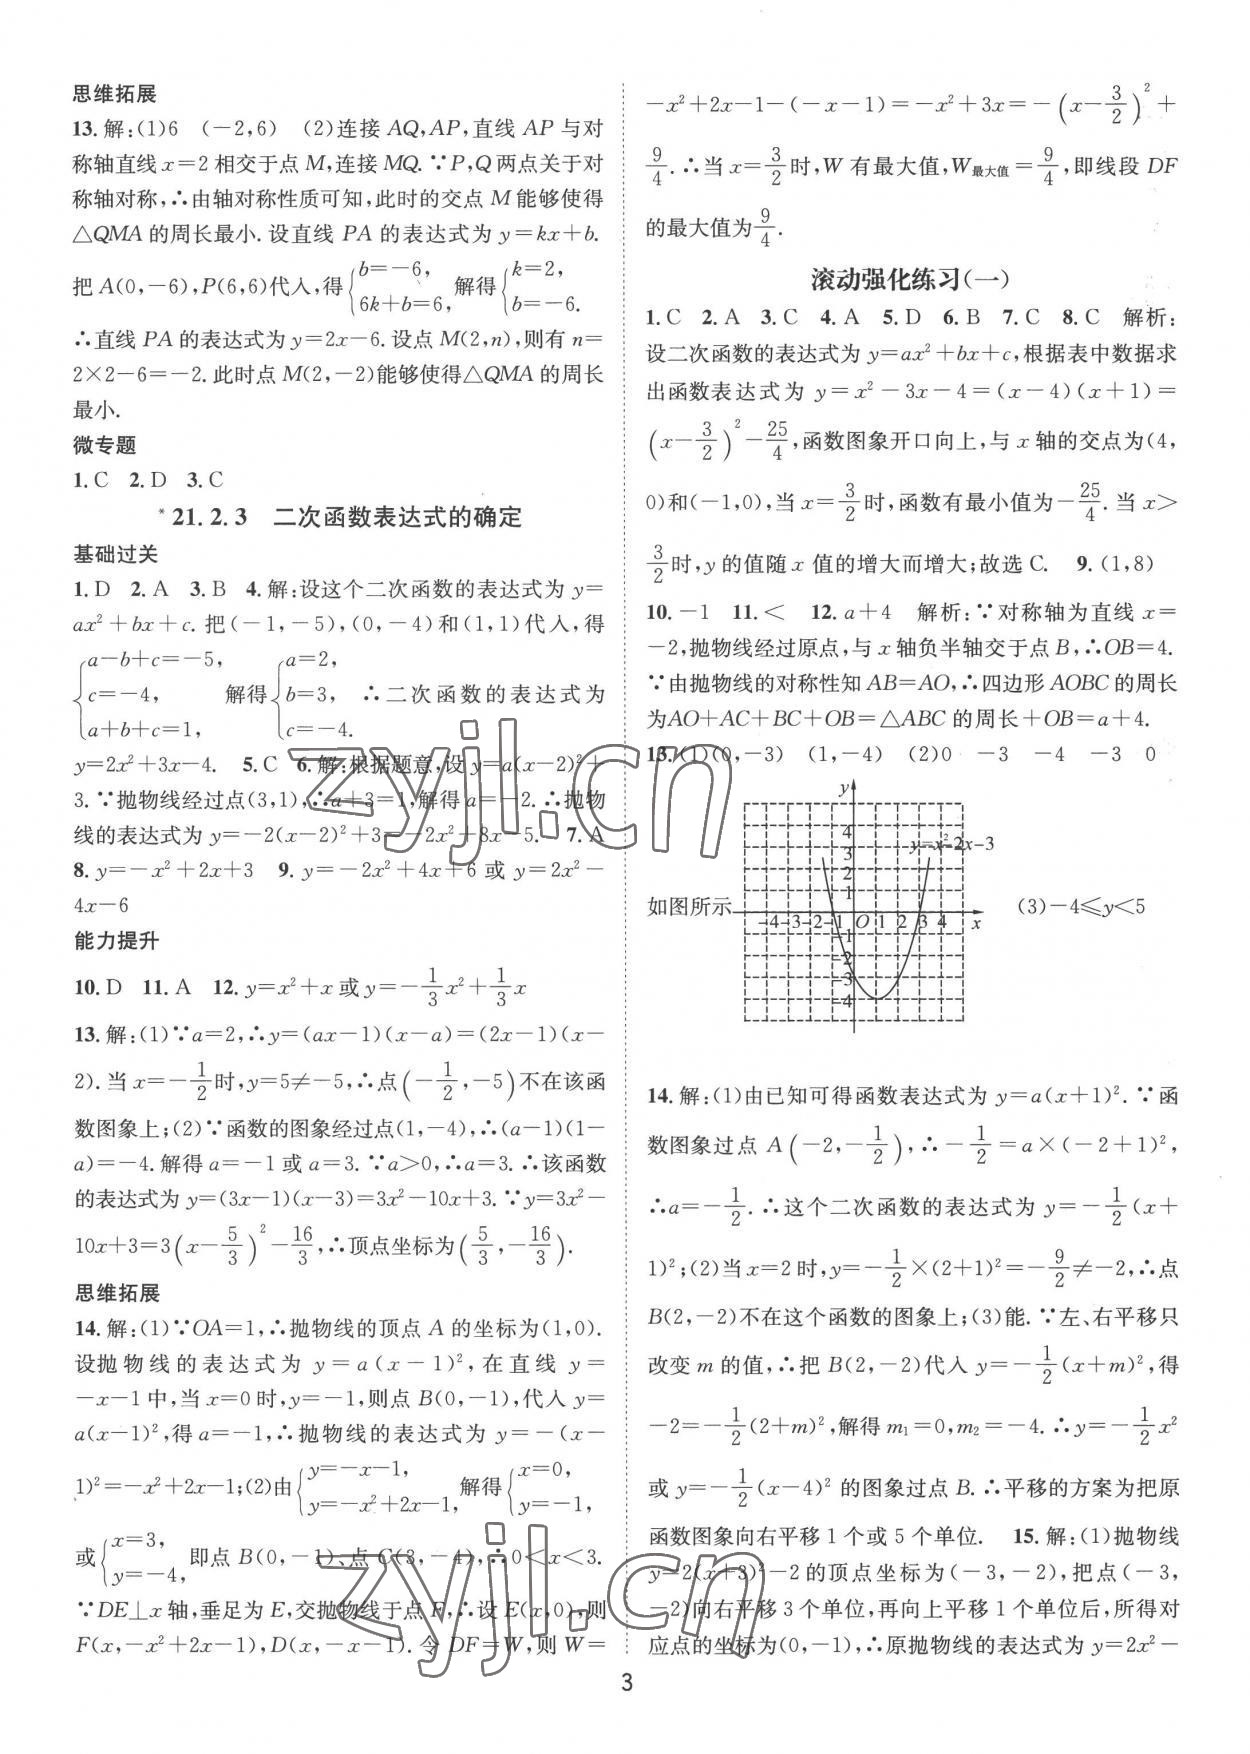 思维拓展
13.解:(1)6 (-2,6) (2)连接 AQ,AP,直线 AP 与对
称轴直线 x=2 相交于点 M,连接 MQ.∵P,Q 两点关于对
称轴对称,∴由轴对称性质可知,此时的交点 M 能够使得
△QMA 的周长最小.设直线 PA 的表达式为 y=kx+b.
把 A(0,-6),P(6,6)代入,得{b=-6, 6k+b=6, 解得{k=2, b=-6.
∴直线 PA 的表达式为 y=2x-6.设点 M(2,n),则有 n=
2×2-6=-2.此时点 M(2,-2)能够使得△QMA 的周长
最小.
微专题
1.C 2.D 3.C
*21.2.3 二次函数表达式的确定
基础过关
1.D 2.A 3.B 4.解:设这个二次函数的表达式为 y=
ax²+bx+c.把(-1,-5),(0,-4)和(1,1)代入,得
{a-b+c=-5, c=-4, a+b+c=1, 解得{a=2, b=3, c=-4. ∴二次函数的表达式为
y=2x²+3x-4. 5.C 6.解:根据题意,设 y=a(x-2)²+
3.∵抛物线经过点(3,1),∴a+3=1,解得 a=-2.∴抛物
线的表达式为 y=-2(x-2)²+3=-2x²+8x-5. 7.A
8.y=-x²+2x+3 9.y=-2x²+4x+6 或 y=2x²-
4x-6
能力提升
10.D 11.A 12.y=x²+x 或 y=-1/3x²+1/3x
13.解:(1)∵a=2,∴y=(ax-1)(x-a)=(2x-1)(x-
2).当 x=-1/2时,y=5≠-5,∴点(-1/2,-5)不在该函
数图象上;(2)∵函数的图象经过点(1,-4),∴(a-1)(1-
a)=-4.解得 a=-1 或 a=3.∵a>0,∴a=3.∴该函数
的表达式为 y=(3x-1)(x-3)=3x²-10x+3.∵y=3x²-
10x+3=3(x-5/3)²-16/3,∴顶点坐标为(5/3,-16/3).
思维拓展
14.解:(1)∵OA=1,∴抛物线的顶点 A 的坐标为(1,0).
设抛物线的表达式为 y=a(x-1)²,在直线 y=
-x-1 中,当 x=0 时,y=-1,则点 B(0,-1),代入 y=
a(x-1)²,得 a=-1,∴抛物线的表达式为 y=-(x-
1)²=-x²+2x-1;(2)由{y=-x-1, y=-x²+2x-1, 解得{x=0, y=-1,
或{x=3, y=-4, 即点 B(0,-1)、点 C(3,-4),∴0<x<3.
∵DE⊥x 轴,垂足为 E,交抛物线于点 F,∴设 E(x,0),则
F(x,-x²+2x-1),D(x,-x-1).令 DF=W,则 W=
-x²+2x-1-(-x-1)=-x²+3x=-(x-3/2)²+
9/4.∴当 x=3/2时,W 有最大值,W最大值=9/4,即线段 DF
的最大值为9/4.
滚动强化练习(一)
1.C 2.A 3.C 4.A 5.D 6.B 7.C 8.C 解析:
设二次函数的表达式为 y=ax²+bx+c,根据表中数据求
出函数表达式为 y=x²-3x-4=(x-4)(x+1)=
(x-3/2)²-25/4,函数图象开口向上,与 x 轴的交点为(4,
0)和(-1,0),当 x=3/2时,函数有最小值为-25/4.当 x>
3/2时,y 的值随 x 值的增大而增大;故选 C. 9.(1,8)
10.-1 11.< 12.a+4 解析:∵对称轴为直线 x=
-2,抛物线经过原点,与 x 轴负半轴交于点 B,∴OB=4.
∵由抛物线的对称性知 AB=AO,∴四边形 AOBC 的周长
为AO+AC+BC+OB=△ABC 的周长+OB=a+4.
13.(1)(0,-3) (1,-4) (2)0 -3 -4 -3 0
y
4
3
2
1
y=x²-2x-3
如图所示
-4-3-2-1 O 1 2 3 4 x
-1
-2
-3
-4
(3)-4≤y<5
14.解:(1)由已知可得函数表达式为 y=a(x+1)².∵函
数图象过点 A(-2,-1/2),∴-1/2=a×(-2+1)²,
∴a=-1/2.∴这个二次函数的表达式为 y=-1/2(x+
1)²;(2)当 x=2 时,y=-1/2×(2+1)²=-9/2≠-2,∴点
B(2,-2)不在这个函数的图象上;(3)能.∵左、右平移只
改变 m 的值,∴把 B(2,-2)代入 y=-1/2(x+m)²,得
-2=-1/2(2+m)²,解得 m₁=0,m₂=-4.∴y=-1/2x²
或 y=-1/2(x-4)² 的图象过点 B.∴平移的方案为把原
函数图象向右平移 1 个或 5 个单位. 15.解:(1)抛物线
y=2(x+3)²-2 的顶点坐标为(-3,-2),把点(-3,
-2)向右平移 3 个单位,再向上平移 1 个单位后,所得对
应点的坐标为(0,-1),∴原抛物线的表达式为 y=2x²-
3
zyjl.cn
zyjl.cn